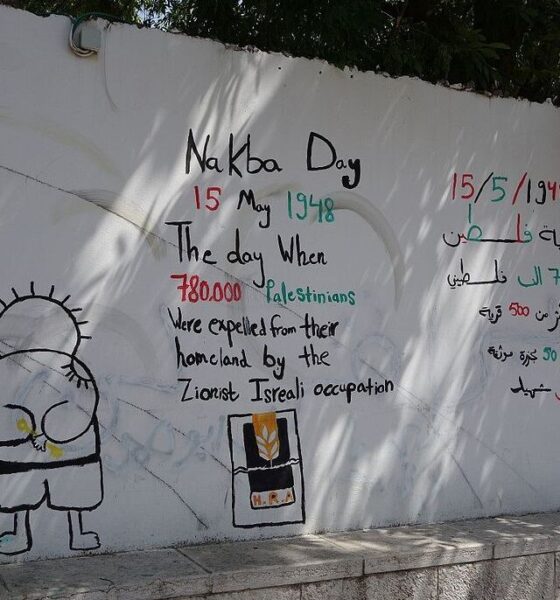 Nakba Day
15 May 1948
The day When
780.000 Palestinians
Were expelled from their
homeland by the
Zionist Isreali occupation
H.R.A
15/5/194
فلسطين
ال فلسطيني
من 500 قرية